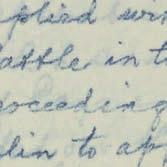 plied wi
attle in t
oceeding
lin to ap